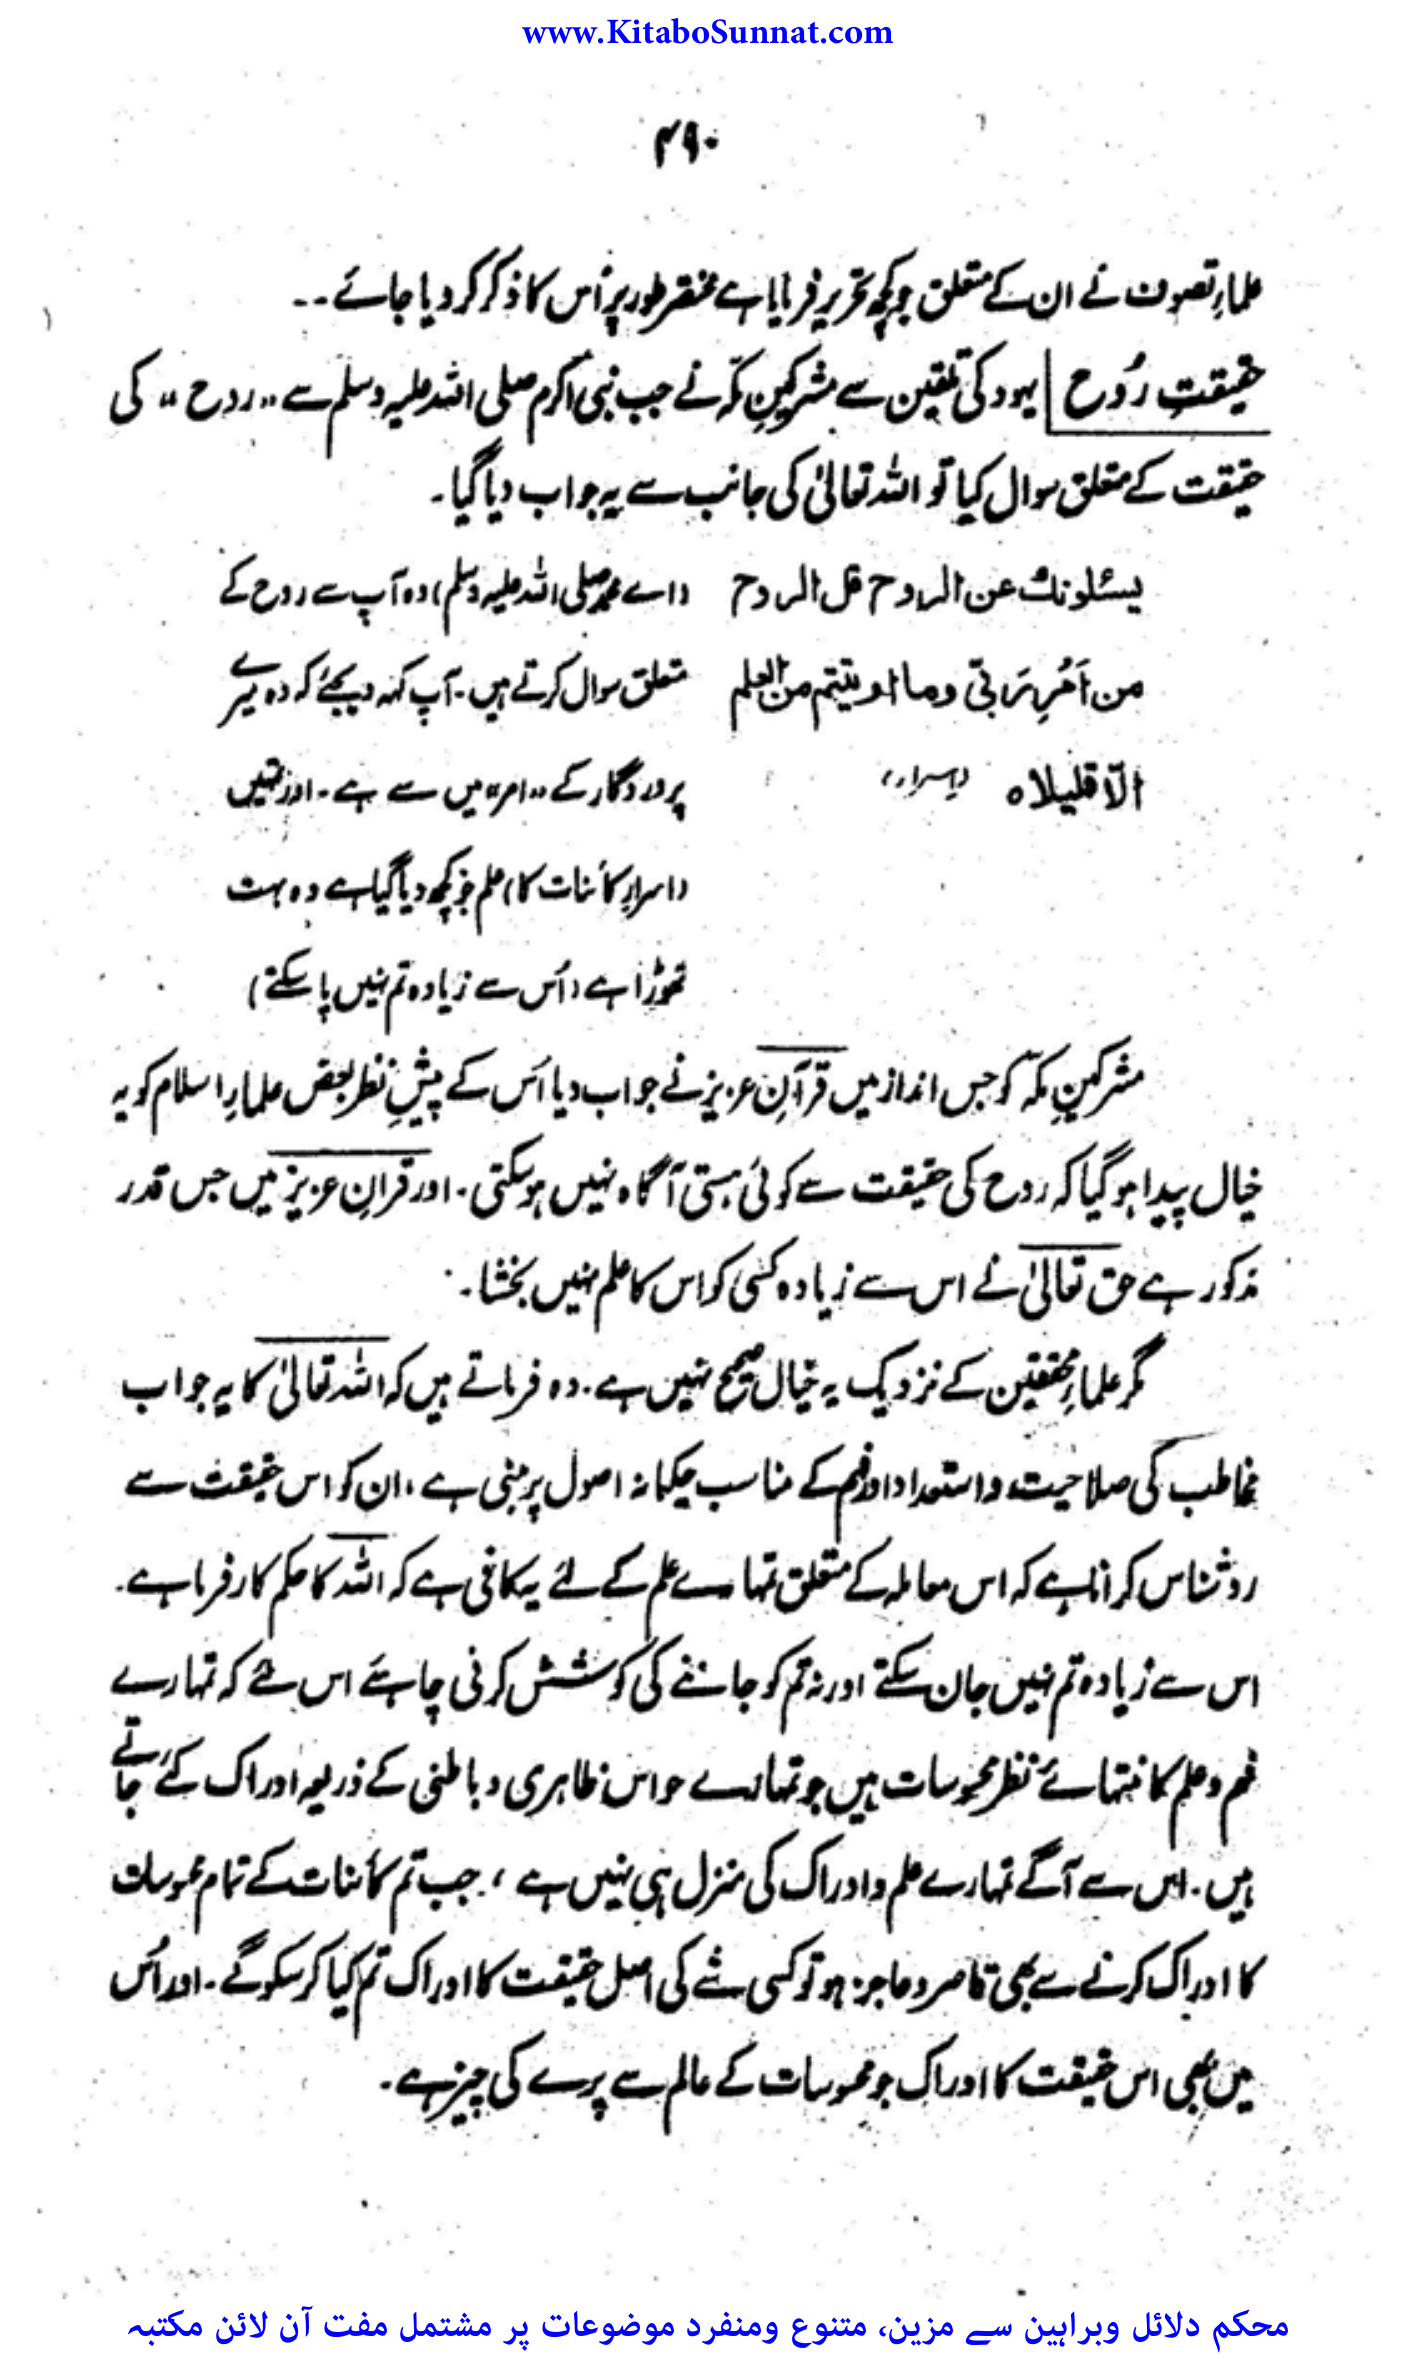 www.KitaboSunnat.com
۴۹۰
علمارِ تصوف نے ان کے متعلق جو کچھ تحریر فرمایا ہے مختصر طور پر اُس کا ذکر کر دیا جائے۔۔
حقیقتِ رُوح یہود کی تلقین سے مشرکینِ مکّہ نے جب نبی اکرم صلی اللہ علیہ وسلم سے "روح" کی
حقیقت کے متعلق سوال کیا تو اللہ تعالیٰ کی جانب سے یہ جواب دیا گیا۔
یسئلونك عن الروح قل الروح (اے محمد صلی اللہ علیہ وسلم) وہ آپ سے روح کے
من اَمْرِ رَبّی وما اوتیتم من العلم متعلق سوال کرتے ہیں۔ آپ کہہ دیجئے کہ وہ میرے
الّا قلیلا ہ (اسرار) پروردگار کے "امر" میں سے ہے۔ اور تمہیں
(اسرارِ کائنات کا) علم جو کچھ دیا گیا ہے وہ بہت
تھوڑا ہے (اُس سے زیادہ تم نہیں پا سکتے)
مشرکینِ مکہّ کو جس انداز میں قرآنِ عزیز نے جواب دیا اُس کے پیشِ نظر بعض علمارِ اسلام کو یہ
خیال پیدا ہو گیا کہ روح کی حقیقت سے کوئی ہستی آگاہ نہیں ہو سکتی۔ اور قرانِ عزیز میں جس قدر
مذکور ہے حق تعالیٰ نے اس سے زیادہ کسی کو اس کا علم نہیں بخشا۔
مگر علمارِ محققین کے نزدیک یہ خیال صحیح نہیں ہے۔ وہ فرماتے ہیں کہ اللہ تعالیٰ کا یہ جواب
مخاطب کی صلاحیت و استعداد اور فہم کے مناسب حکیمانہ اصول پر مبنی ہے، ان کو اس حقیقت سے
روشناس کرانا ہے کہ اس معاملہ کے متعلق تمہارے علم کے لئے یہ کافی ہے کہ اللہ کا حکم کارفرما ہے۔
اس سے زیادہ تم نہیں جان سکتے اور نہ تم کو جاننے کی کوشش کرنی چاہئے اس لئے کہ تمہارے
فہم و علم کا منتہائے نظر محسوسات ہیں جو تمہارے حواس ظاہری و باطنی کے ذریعہ ادراک کئے جاتے
ہیں۔ اس سے آگے تمہارے علم و ادراک کی منزل ہی نہیں ہے، جب تم کائنات کے تمام محسوسات
کا ادراک کرنے سے بھی قاصر و عاجز ہو تو کسی شے کی اصل حقیقت کا ادراک تم کیا کر سکو گے۔ اور اُس
میں بھی اس حقیقت کا ادراک جو محسوسات کے عالم سے پرے کی چیز ہے۔
محکم دلائل وبراہین سے مزین، متنوع ومنفرد موضوعات پر مشتمل مفت آن لائن مکتبہ